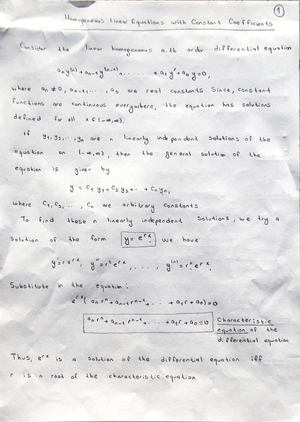 1
Homogeneous Linear Equations with Constant Coefficients
Consider the linear homogeneous n.th order differential equation
aₙy⁽ⁿ⁾ + aₙ₋₁y⁽ⁿ⁻¹⁾ + ...... + a₁y' + a₀y = 0,
where aₙ ≠ 0, aₙ₋₁, ..., a₀ are real constants. Since, constant
functions are continuous everywhere, the equation has solutions
defined for all x ∈ (-∞,∞).
If y₁, y₂, ..., yₙ are n linearly independent solutions of the
equation on (-∞,∞), then the general solution of the
equation is given by
y = c₁y₁ + c₂y₂ ... + cₙyₙ,
where c₁, c₂, ..., cₙ are arbitrary constants
To find these n linearly independent solutions, we try a
solution of the form y = eʳˣ. We have
y' = reʳˣ, y'' = r²eʳˣ, ..., y⁽ⁿ⁾ = rⁿeʳˣ.
Substitute in the equation:
eʳˣ(aₙrⁿ + aₙ₋₁rⁿ⁻¹ + ... + a₁r + a₀) = 0
aₙrⁿ + aₙ₋₁rⁿ⁻¹ + ... + a₁r + a₀ = 0 Characteristic
equation of the
differential equation
Thus, eʳˣ is a solution of the differential equation iff
r is a root of the characteristic equation